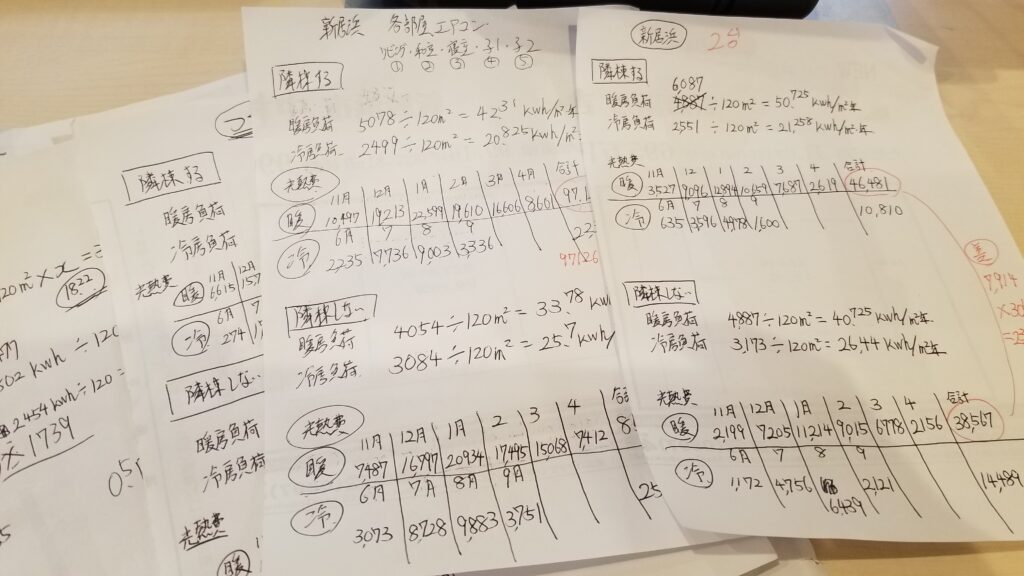 120m² × x =
18.22
302 kwh ÷ 120
2454 kwh ÷ 120 =
× 1739
隣棟する
暖房負荷
冷房負荷
光熱費
11月 12月
暖 6,615
6月 7
冷 274
隣棟しない
暖房負荷
冷房負荷
光熱費
暖
新居浜 各部屋エアコン
リビング・和室・寝室・子1・子2
① ② ③ ④ ⑤
隣棟する
暖房負荷 5078÷120m² = 42.31 kwh/m²・年
冷房負荷 2499÷120m² = 20.825 kwh/m²・年
光熱費
11月 12月 1月 2月 3月 4月 合計
暖 10,497 19,213 22,599 19,610 16,606 8,601
6月 7 8 9
冷 2,235 7,736 9,003 3,336
97,126
隣棟しない
暖房負荷 4054÷120m² = 33.78 kwh
冷房負荷 3084÷120m² = 25.7 kwh/
光熱費
11月 12月 1月 2 3 4 合計
暖 7,487 16,797 20,934 17,495 15,068 7,412
6月 7月 8月 9月
冷 3,073 8,728 9,883 3,751
新居浜 2台
隣棟する
6,087
暖房負荷 ÷120m² = 50.725 kwh/m²年
冷房負荷 2551 ÷120m² = 21.258 kwh/m²年
光熱費
11月 12 1 2 3 4 合計
暖 3,527 9,096 12,894 10,659 7,687 2,619 46,481
6月 7 8 9
冷 635 3,596 4,978 1,600 10,810
差
7,914
隣棟しない
暖房負荷 4887÷120m² = 40.725 kwh/m²年
冷房負荷 3,173÷120m² = 26.44 kwh/m²年
光熱費
11月 12月 1月 2 3 4 合計
暖 2,199 7,205 11,214 9,015 6,778 2,156 38,567
6月 7 8 9
冷 1,172 4,756 6,439 2,121 14,489